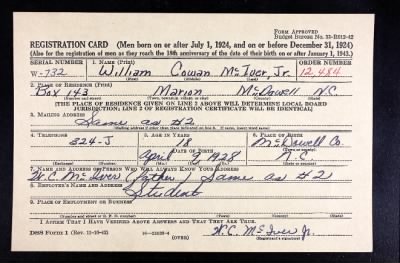 FORM APPROVED
Budget Bureau No. 33-R012-42
REGISTRATION CARD (Men born on or after July 1, 1924, and on or before December 31, 1924)
(Also for the registration of men as they reach the 18th anniversary of the date of their birth on or after January 1, 1943.)
SERIAL NUMBER 1. NAME (Print) ORDER NUMBER
W-732 William Cowan McIver, Jr. 12,484
(First) (Middle) (Last)
2. PLACE OF RESIDENCE (Print)
Box 143 Marion McDowell N.C.
(Number and street) (Town, township, village or city) (County) (State)
[THE PLACE OF RESIDENCE GIVEN ON LINE 2 ABOVE WILL DETERMINE LOCAL BOARD
JURISDICTION; LINE 2 OF REGISTRATION CERTIFICATE WILL BE IDENTICAL]
3. MAILING ADDRESS
Same as #2
(Mailing address if other than place indicated on line 2. If same, insert word same)
4. TELEPHONE 5. AGE IN YEARS 6. PLACE OF BIRTH
324-J 18 McDowell Co.
DATE OF BIRTH
April 9 1928 N.C.
7. NAME AND ADDRESS OF PERSON WHO WILL ALWAYS KNOW YOUR ADDRESS
W.C. McIver (father) Same as #2
8. EMPLOYER'S NAME AND ADDRESS
Student
9. PLACE OF EMPLOYMENT OR BUSINESS
(Number and street or R. F. D. number) (Town) (County) (State)
I AFFIRM THAT I HAVE VERIFIED ABOVE ANSWERS AND THAT THEY ARE TRUE.
DSS Form 1 (Rev. 11-16-42) (OVER) W.C. McIver Jr.